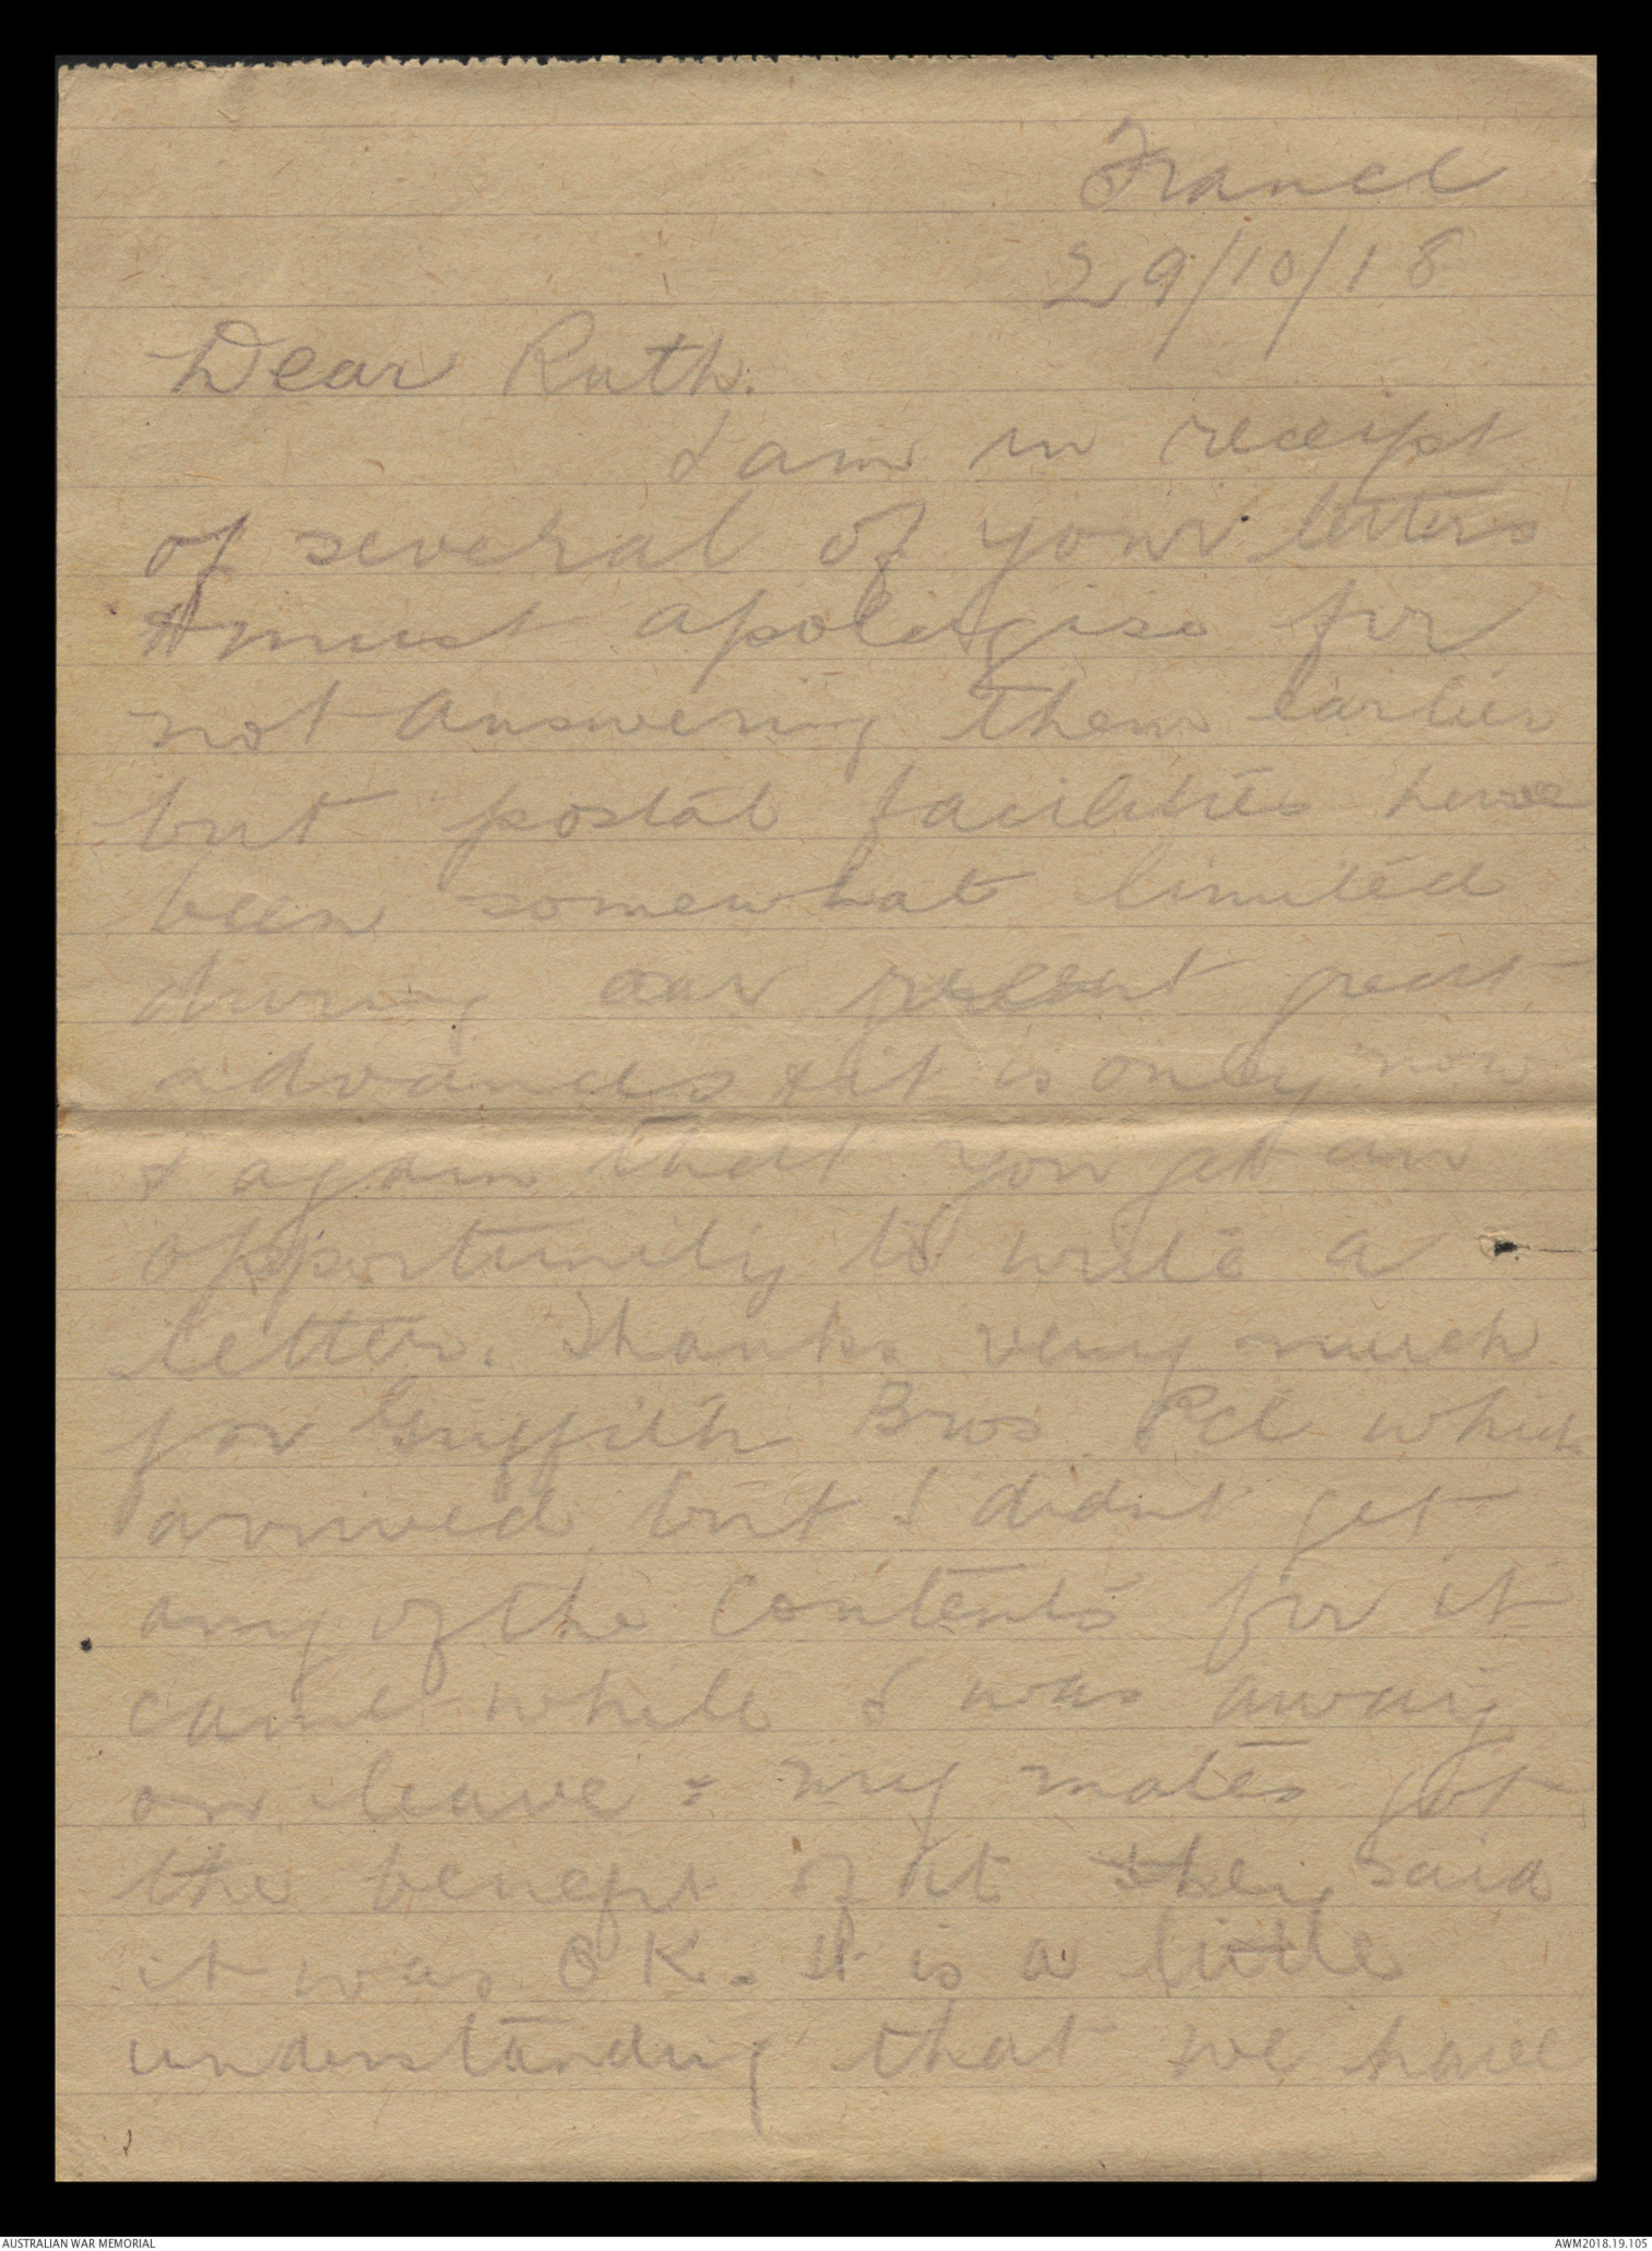 France
29/10/18
Dear Ruth.
I am in receipt
of several of your letters
& must apologise for
not answering them earlier
but postal facilities have
been somewhat limited
during our great
advances & it is only now
& again that you get an
opportunity to write a
letter. Thanks very much
for Griffith Bros Pcl which
arrived but I didnt get
any of the contents for it
came while I was away
on leave & my mates got
the benefit of it they said
it was OK. It is a little
understanding that we have
AUSTRALIAN WAR MEMORIAL
AWM2018.19.105